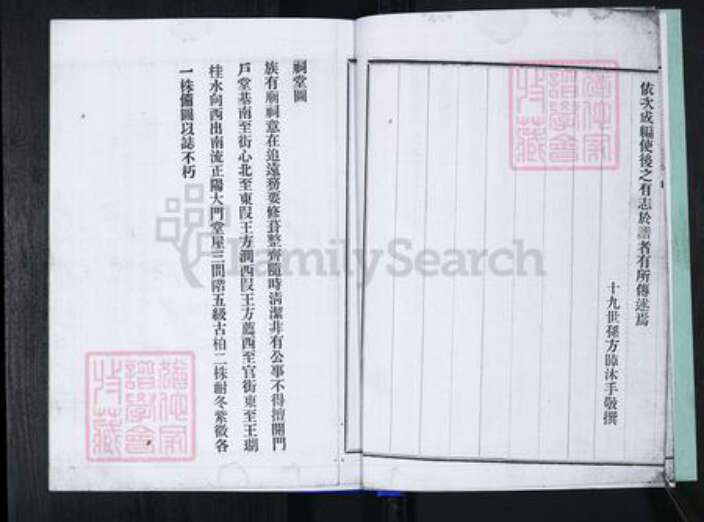 依次成編使後之有志於譜者有所傳述焉
十九世孫方暐沐手敬撰
祠堂圖
族有廟祠意在追遠務要修葺整齊隨時清潔非有公事不得擅開門
戶堂基南至街心北至東段王方潤西段王方薦西至官街東至王瑚
桂水向西出南流正陽大門堂屋三間階五級古柏二株耐冬紫薇各
一株備圖以誌不朽
FamilySearch